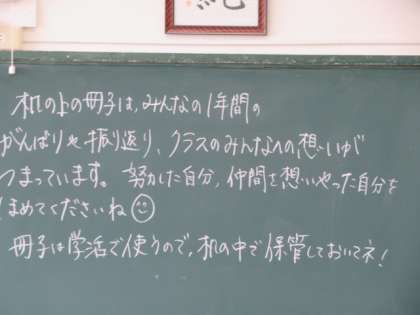 机の上の冊子は、みんなの1年間の
がんばりや振り返り、クラスのみんなへの想いが
つまっています。努力した自分、仲間を想いやった自分を
ほめてくださいね
冊子は学活で使うので、机の中で保管しておいてネ!